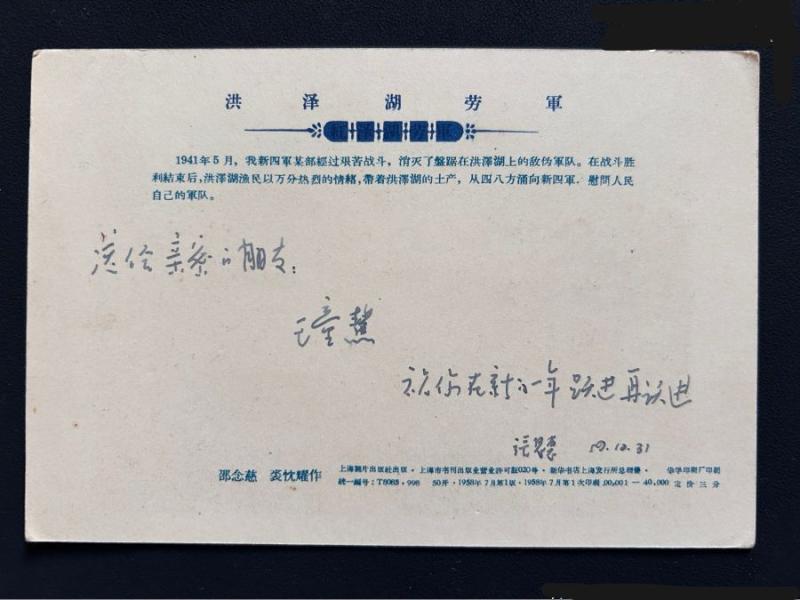 洪泽湖劳軍
1941年5月，我新四軍某部經过艰苦战斗，消灭了盤踞在洪澤湖上的敌伪軍队。在战斗胜
利結束后，洪澤湖渔民以万分热烈的情緒，帶着洪澤湖的土产，从四八方涌向新四軍，慰問人民
自己的軍队。
送给亲密的朋友：
祝你在新的一年跃进再跃进
59.12.31
邵念慈 裘忱耀作
上海圖片出版社出版·上海市書刊出版业营业許可証020号·新华書店上海发行所总經售· 华学印刷厂印刷
統一編号：T8085·998 50开·1958年7月第1版·1958年7月第1次印刷 00,001—40,000 定价三分